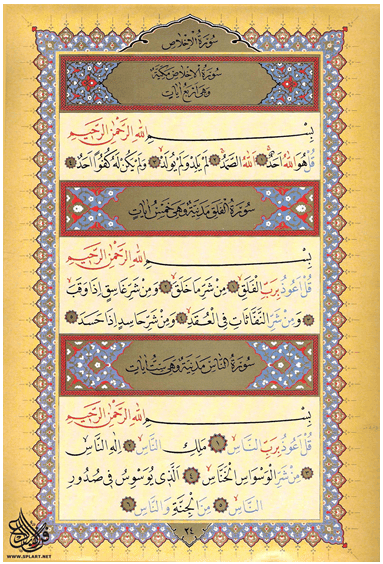 سُورَةُ الْإِخْلَاصِ
سُورَةُ الْإِخْلَاصِ مَكِّيَّةٌ
وَهِيَ أَرْبَعُ آيَاتٍ
بِسْمِ اللهِ الرَّحْمٰنِ الرَّحِيمِ
قُلْ هُوَ اللهُ اَحَدٌ ﴿١﴾ اَللهُ الصَّمَدُ ﴿٢﴾ لَمْ يَلِدْ وَلَمْ يُولَدْ ﴿٣﴾ وَلَمْ يَكُنْ لَهُ كُفُوًا اَحَدٌ ﴿٤﴾
سُورَةُ الْفَلَقِ مَدَنِيَّةٌ وَهِيَ خَمْسُ اٰيَاتٍ
بِسْمِ اللهِ الرَّحْمٰنِ الرَّحِيمِ
قُلْ اَعُوذُ بِرَبِّ الْفَلَقِ ﴿١﴾ مِنْ شَرِّ مَا خَلَقَ ﴿٢﴾ وَمِنْ شَرِّ غَاسِقٍ اِذَا وَقَبَ
﴿٣﴾ وَمِنْ شَرِّ النَّفَّاثَاتِ فِي الْعُقَدِ ﴿٤﴾ وَمِنْ شَرِّ حَاسِدٍ اِذَا حَسَدَ ﴿٥﴾
سُورَةُ النَّاسِ مَدَنِيَّةٌ وَهِيَ سِتُّ اٰيَاتٍ
بِسْمِ اللهِ الرَّحْمٰنِ الرَّحِيمِ
قُلْ اَعُوذُ بِرَبِّ النَّاسِ ﴿١﴾ مَلِكِ النَّاسِ ﴿٢﴾ اِلٰهِ النَّاسِ
﴿٣﴾ مِنْ شَرِّ الْوَسْوَاسِ الْخَنَّاسِ ﴿٤﴾ اَلَّذِي يُوَسْوِسُ فِي صُدُورِ
النَّاسِ ﴿٥﴾ مِنَ الْجِنَّةِ وَالنَّاسِ ﴿٦﴾
٢٤
WWW.SPLART.NET